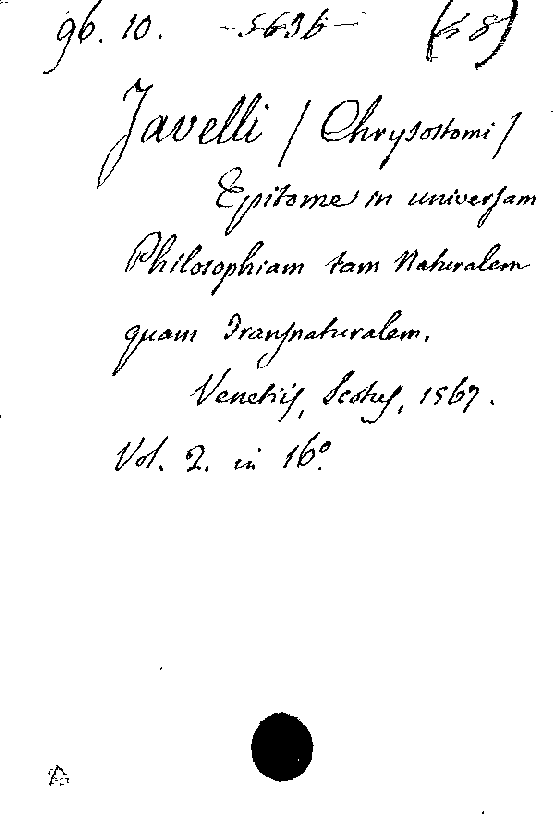 96. 10. 5636 (28)
Javelli / Chrysostomi /
Epitome in universam
Philosophiam tam Naturalem
quam Transnaturalem.
Venetiis, Scotus, 1567.
Vol. 2. in 16º.